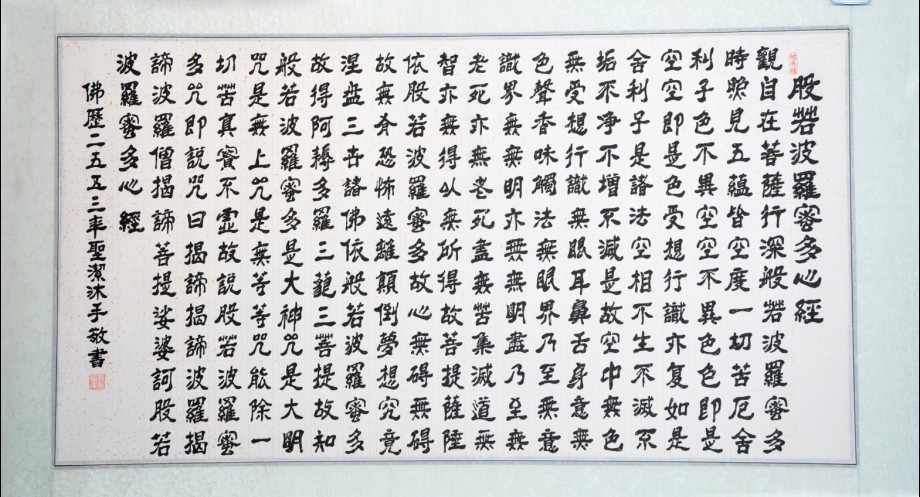 般若波羅蜜多心經
觀自在菩薩行深般若波羅蜜多
時照見五蘊皆空度一切苦厄舍
利子色不異空空不異色色即是
空空即是色受想行識亦復如是
舍利子是諸法空相不生不滅不
垢不淨不增不減是故空中無色
無受想行識無眼耳鼻舌身意無
色聲香味觸法無眼界乃至無意
識界無無明亦無無明盡乃至無
老死亦無老死盡無苦集滅道無
智亦無得以無所得故菩提薩埵
依般若波羅蜜多故心無碍無碍
故無有恐怖遠離顛倒夢想究竟
涅盘三世諸佛依般若波羅蜜多
故得阿耨多羅三藐三菩提故知
般若波羅蜜多是大神咒是大明
咒是無上咒是無等等咒能除一
切苦真實不虛故說般若波羅蜜
多咒即說咒曰揭諦揭諦波羅揭
諦波羅僧揭諦菩提娑婆訶般若
波羅蜜多心經
佛歷二五五三年聖潔沐手敬書